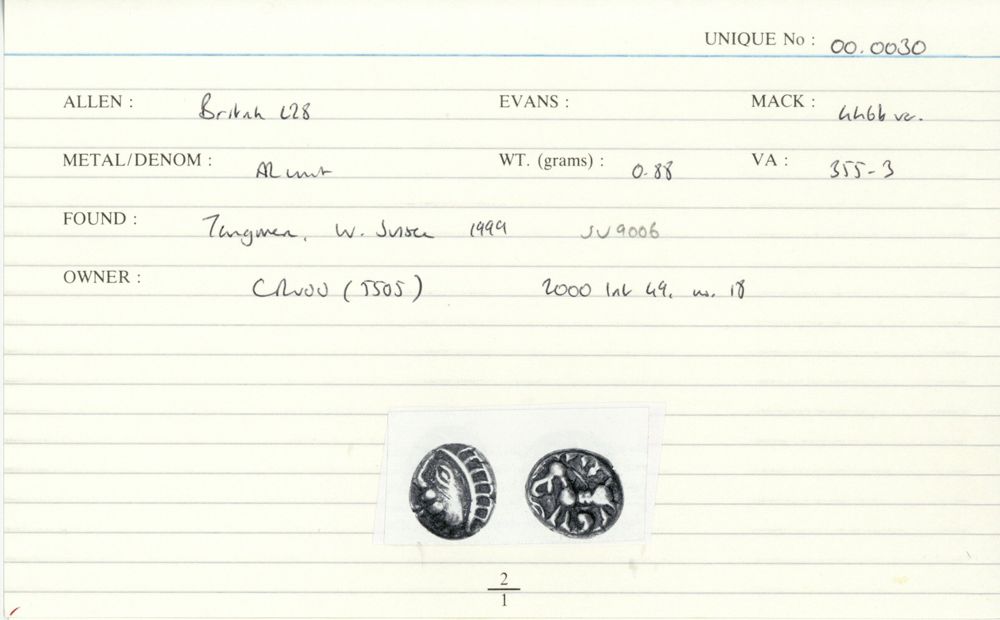 UNIQUE No : 00.0030
ALLEN : British L28 EVANS : MACK : 446b var.
METAL/DENOM : AR unit WT. (grams) : 0.88 VA : 355-3
FOUND : Tangmere, W. Sussex 1999 SU9006
OWNER : (5505) 2000 49, no. 18
2
1